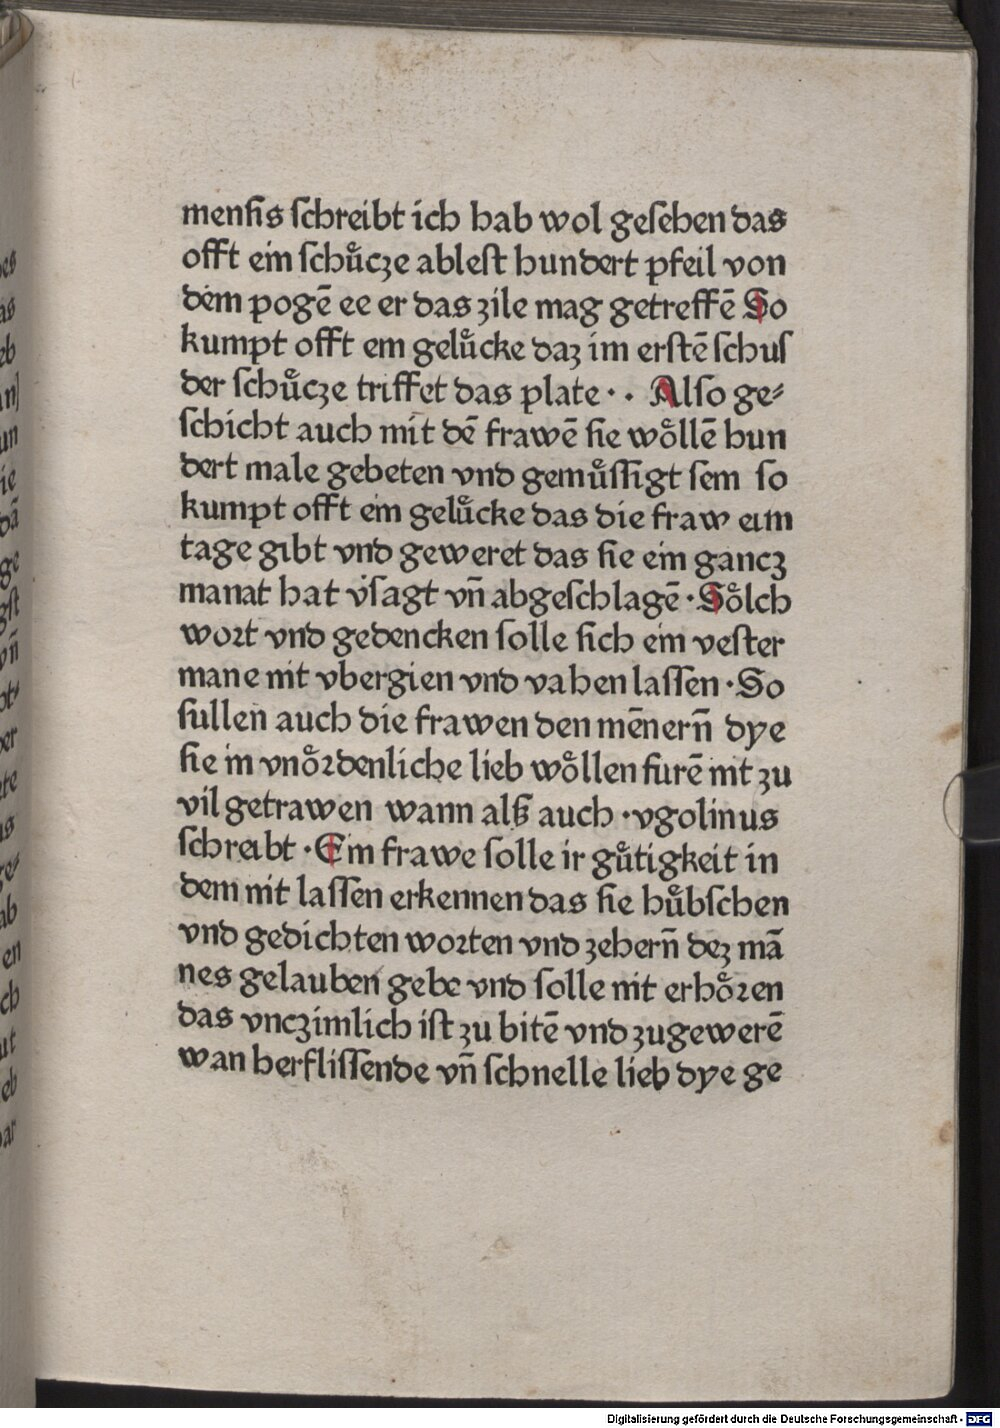 menſis ſchreibt ich hab wol geſehen das
offt ein ſchuͤcze ableſt hundert pfeil von
dem pogē ee er das zile mag getreffē So
kumpt offt ein geluͤcke daz im erſtē ſchuſ
der ſchuͤcze triffet das plate · · Alſo ge⸗
ſchicht auch mit dē frawē ſie woͤllē hun
dert male gebeten vnd gemuͤſſigt ſein ſo
kumpt offt ein geluͤcke das die fraw eim
tage gibt vnd geweret das ſie ein gancz
manat hat v̇ſagt vn̄ abgeſchlagē · Soͤlch
woꝛt vnd gedencken ſolle ſich ein veſter
mane nit vbergien vnd vahen laſſen · So
ſullen auch die frawen den mēnern̄ dye
ſie in vnoͤꝛdenliche lieb woͤllen furē nit zu
vil getrawen wann alß auch · vgolinus
ſchreibt · Ein frawe ſolle ir guͤtigkeit in
dem nit laſſen erkennen das ſie huͤbſchen
vnd gedichten woꝛten vnd zehern̄ dez mā
nes gelauben gebe vnd ſolle nit erhoͤꝛen
das vnczimlich iſt zu bitē vnd zugewerē
wan herfliſſende vn̄ ſchnelle lieb dye ge
Digitalisierung gefördert durch die Deutsche Forschungsgemeinschaft - DFG